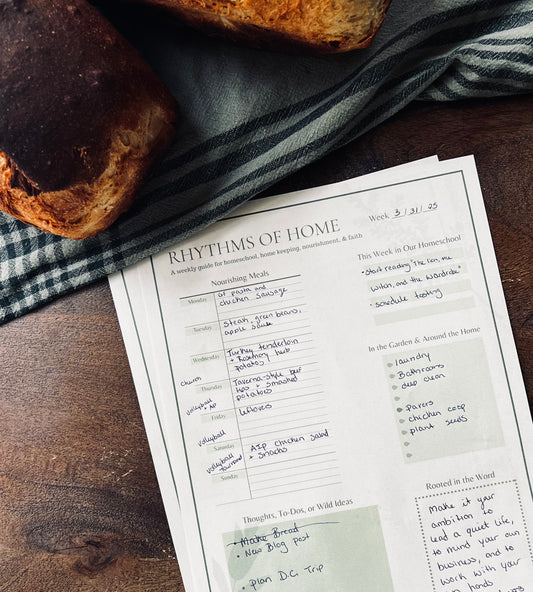 RHYTHMS OF HOME
Week 3/31/25
A weekly guide for homeschool, home keeping, nourishment, & faith
Nourishing Meals
Monday
gf pasta and
chicken sausage
Tuesday
Steak, green beans,
apple sauce
Wednesday
Turkey tenderloin
+ Rosemary herb
potatoes
church
Thursday
Taverna-style beef
+ smashed
potatoes
volleyball
Friday
Leftovers
volleyball
Saturday
AIP chicken salad
+ snacks
volleyball
Sunday
This Week in Our Homeschool
• Start reading "The lion, the
witch, and the Wardrobe"
• schedule testing
In the Garden & Around the Home
laundry
Bathrooms
deep clean
Pavers
chicken coop
plant seeds
Thoughts, To-Dos, or Wild Ideas
• Make Bread
• New Blog post
• plan D.C. Trip
Rooted in the Word
Make it your
ambition to
lead a quiet life,
to mind your own
business, and to
work with your
own hands